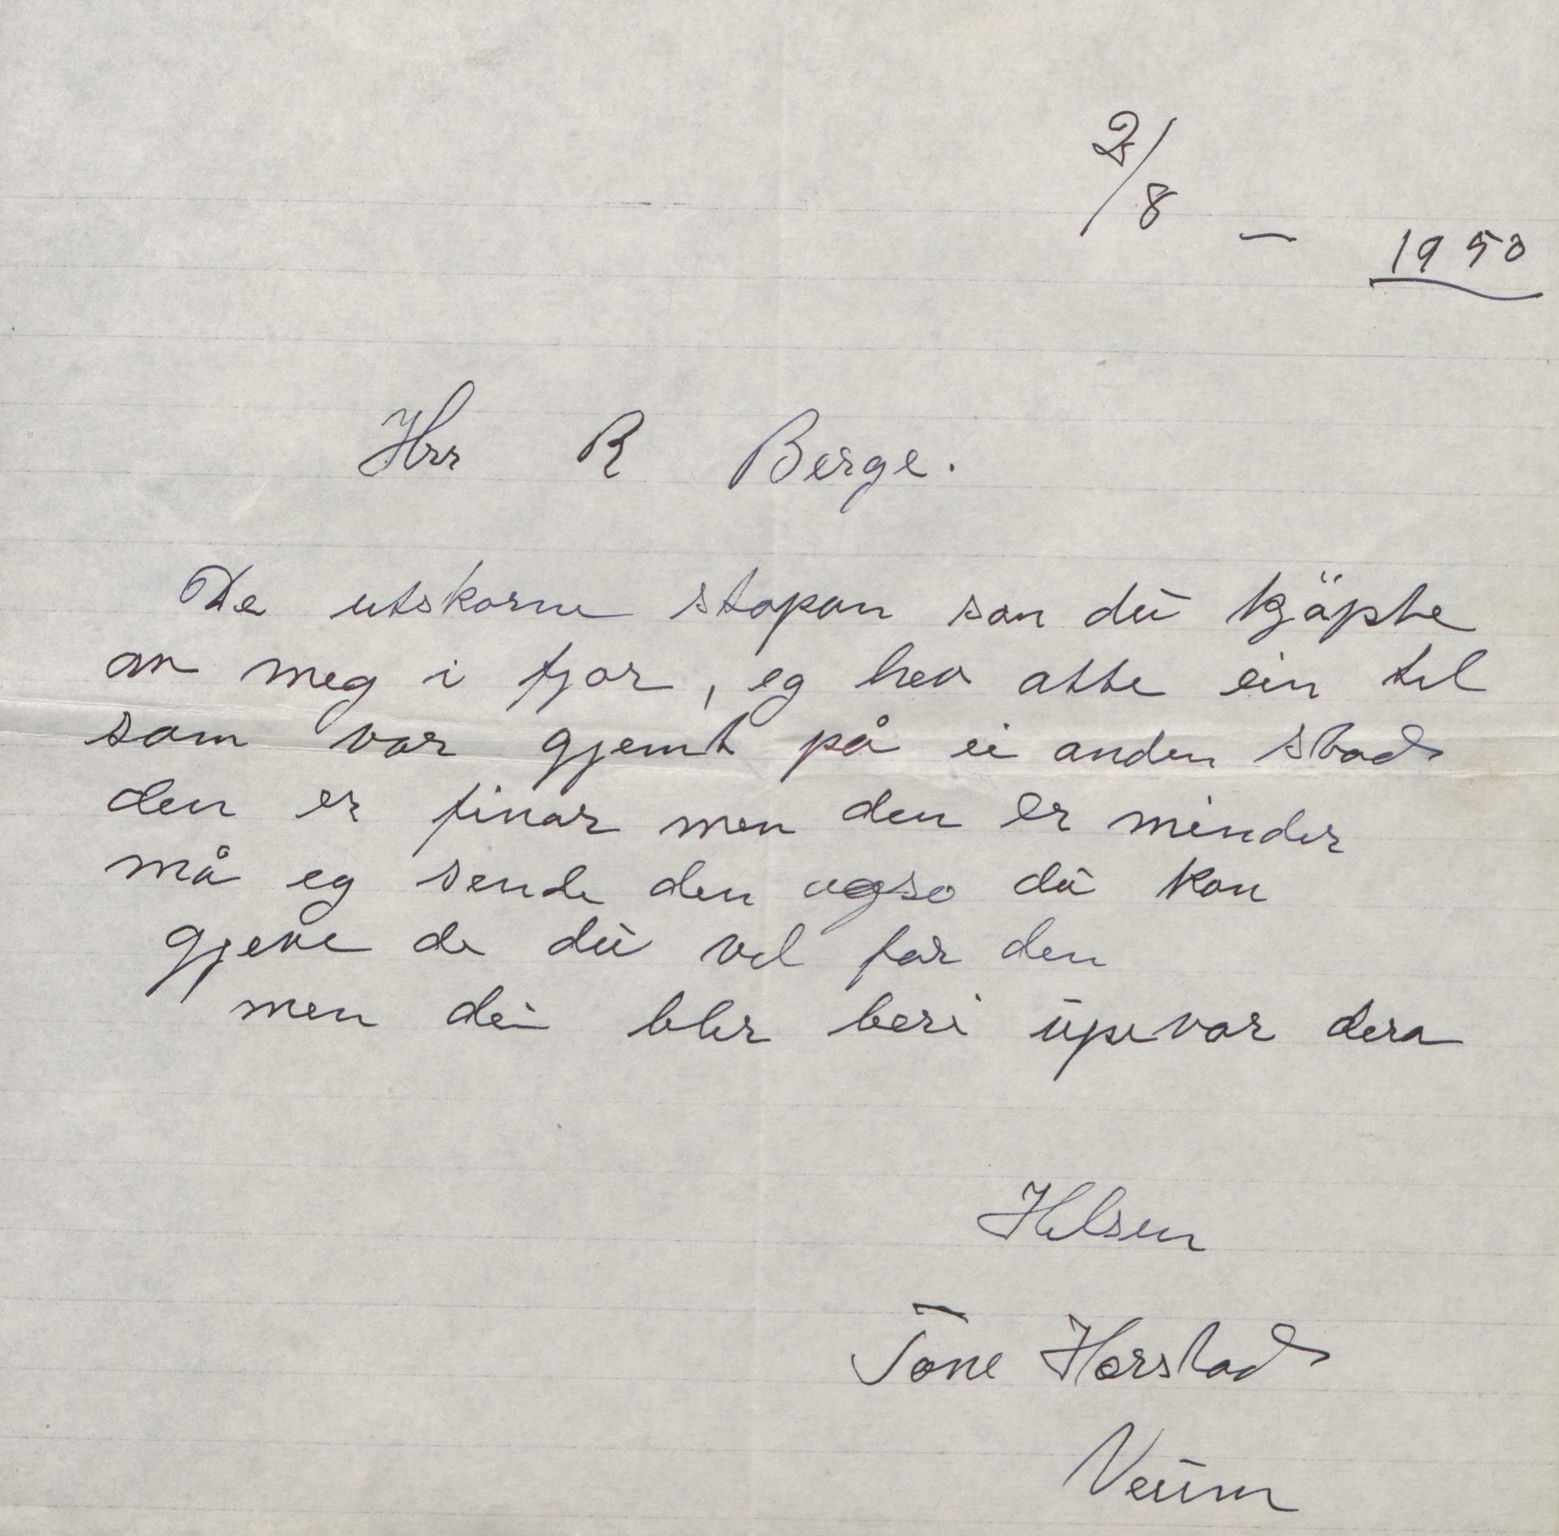 2/8 – 1950
Hrr R Berge.
De utskorne stopan som du kjöpte
av meg i fjor, eg hev atte ein til
som var gjemt på ei anden stad
den er finar men den er minder
må eg sende den ogso du kan
gjeve de du vil for den
men dei blir beri úpevar dera
Helsen
Tone Horstad
Veum